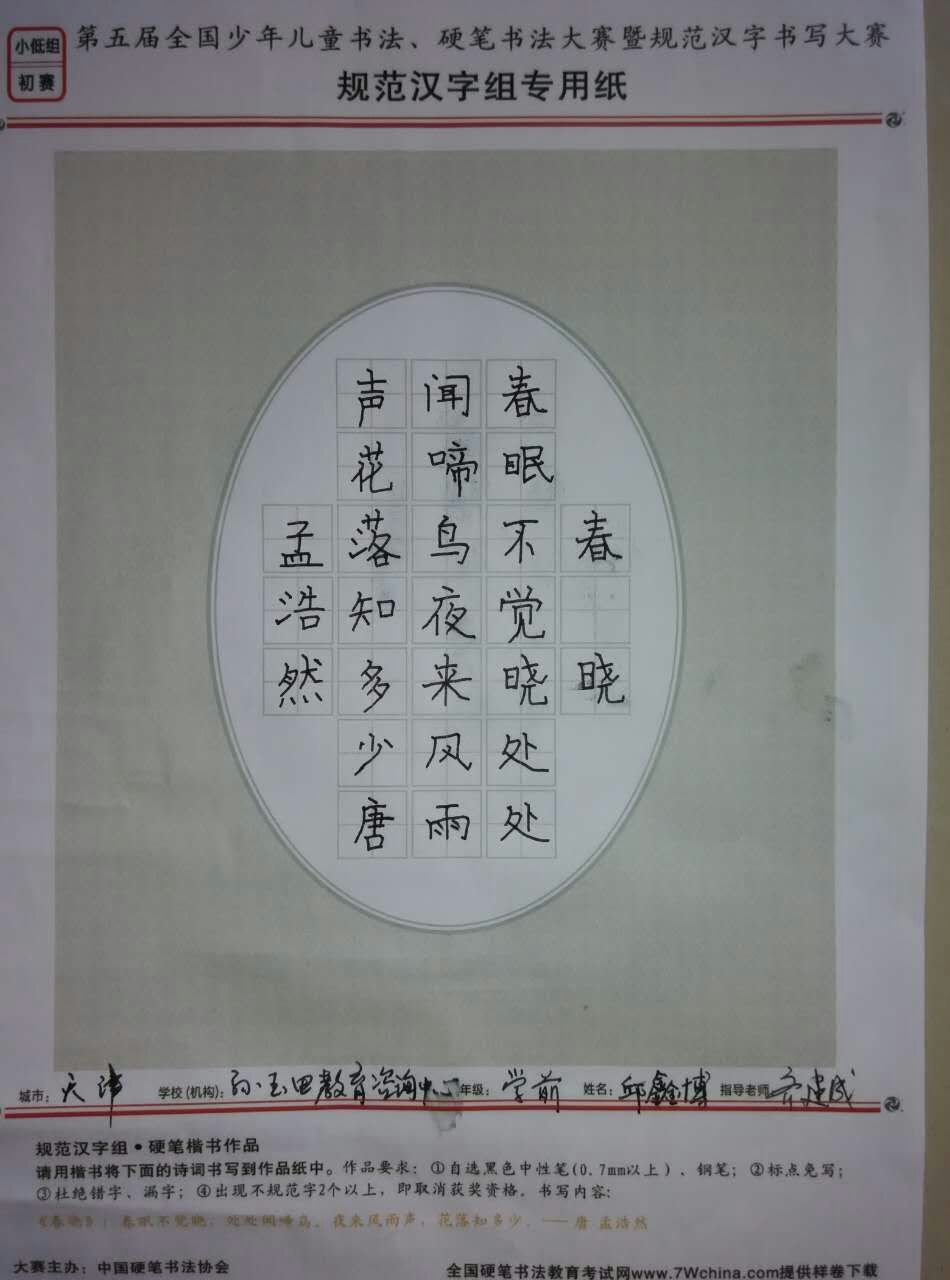 小低组
初赛
第五届全国少年儿童书法、硬笔书法大赛暨规范汉字书写大赛
规范汉字组专用纸
春晓
春眠不觉晓处处
闻啼鸟夜来风雨
声花落知多少唐
孟浩然
城市：天津 学校(机构)：孙玉田教育咨询中心 年级：学前 姓名：邱鑫博 指导老师 齐建成
规范汉字组•硬笔楷书作品
请用楷书将下面的诗词书写到作品纸中。作品要求：①自选黑色中性笔(0.7mm以上)、钢笔；②标点免写；
③杜绝错字、漏字；④出现不规范字2个以上，即取消获奖资格。书写内容：
《春晓》：春眠不觉晓，处处闻啼鸟。夜来风雨声，花落知多少。——唐 孟浩然
大赛主办：中国硬笔书法协会 全国硬笔书法教育考试网www.7Wchina.com提供样卷下载